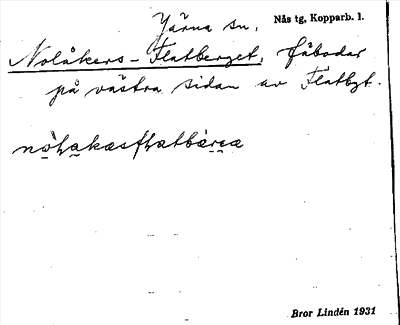 Yärna sn. Nås tg, Kopparb. l.
Nolåkers-Flatberget, fäbodar
på västra sidan av Flatbgt.
Bror Lindén 1931